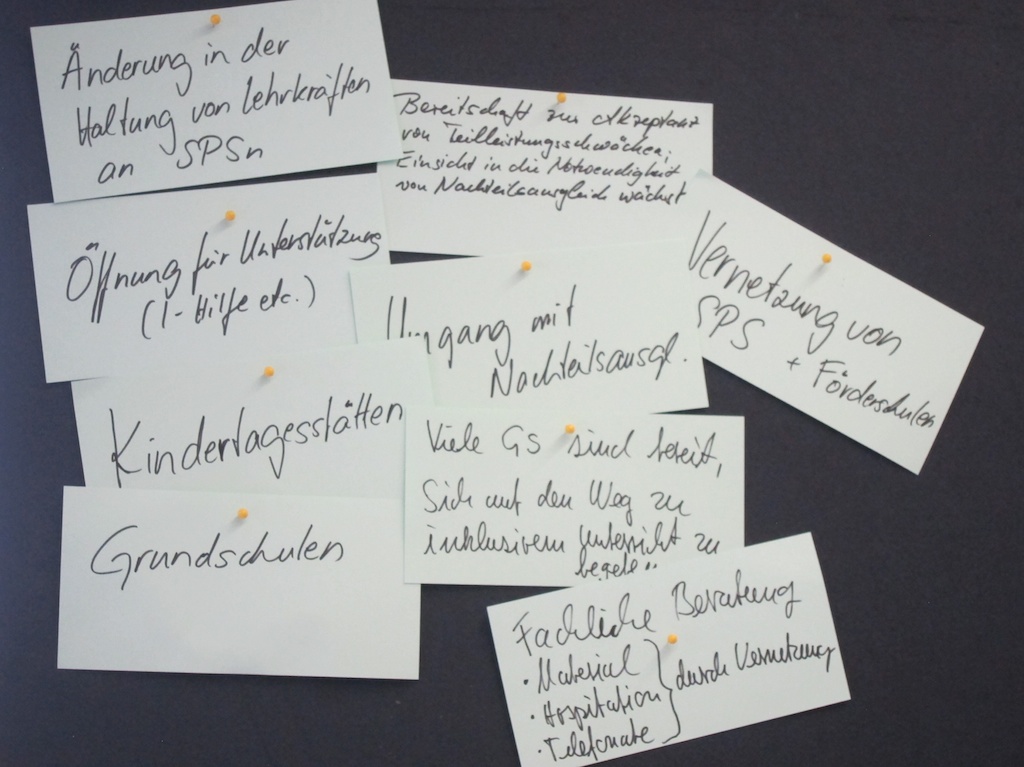 Änderung in der
Haltung von Lehrkräften
an SPSn
Bereitschaft zur Akzeptanz
von Teilleistungsschwächen;
Einsicht in die Notwendigkeit
von Nachteilsausgleich wächst
Öffnung für Unterstützung
(I-Hilfe etc.)
Umgang mit
Nachteilsausgl.
Vernetzung von
SPS
+ Förderschulen
Kindertagesstätten
Viele GS sind bereit,
sich auf den Weg zu
inklusivem Unterricht zu
Grundschulen
Fachliche Beratung
· Material
· Hospitation
· Telefonate
} durch Vernetzung